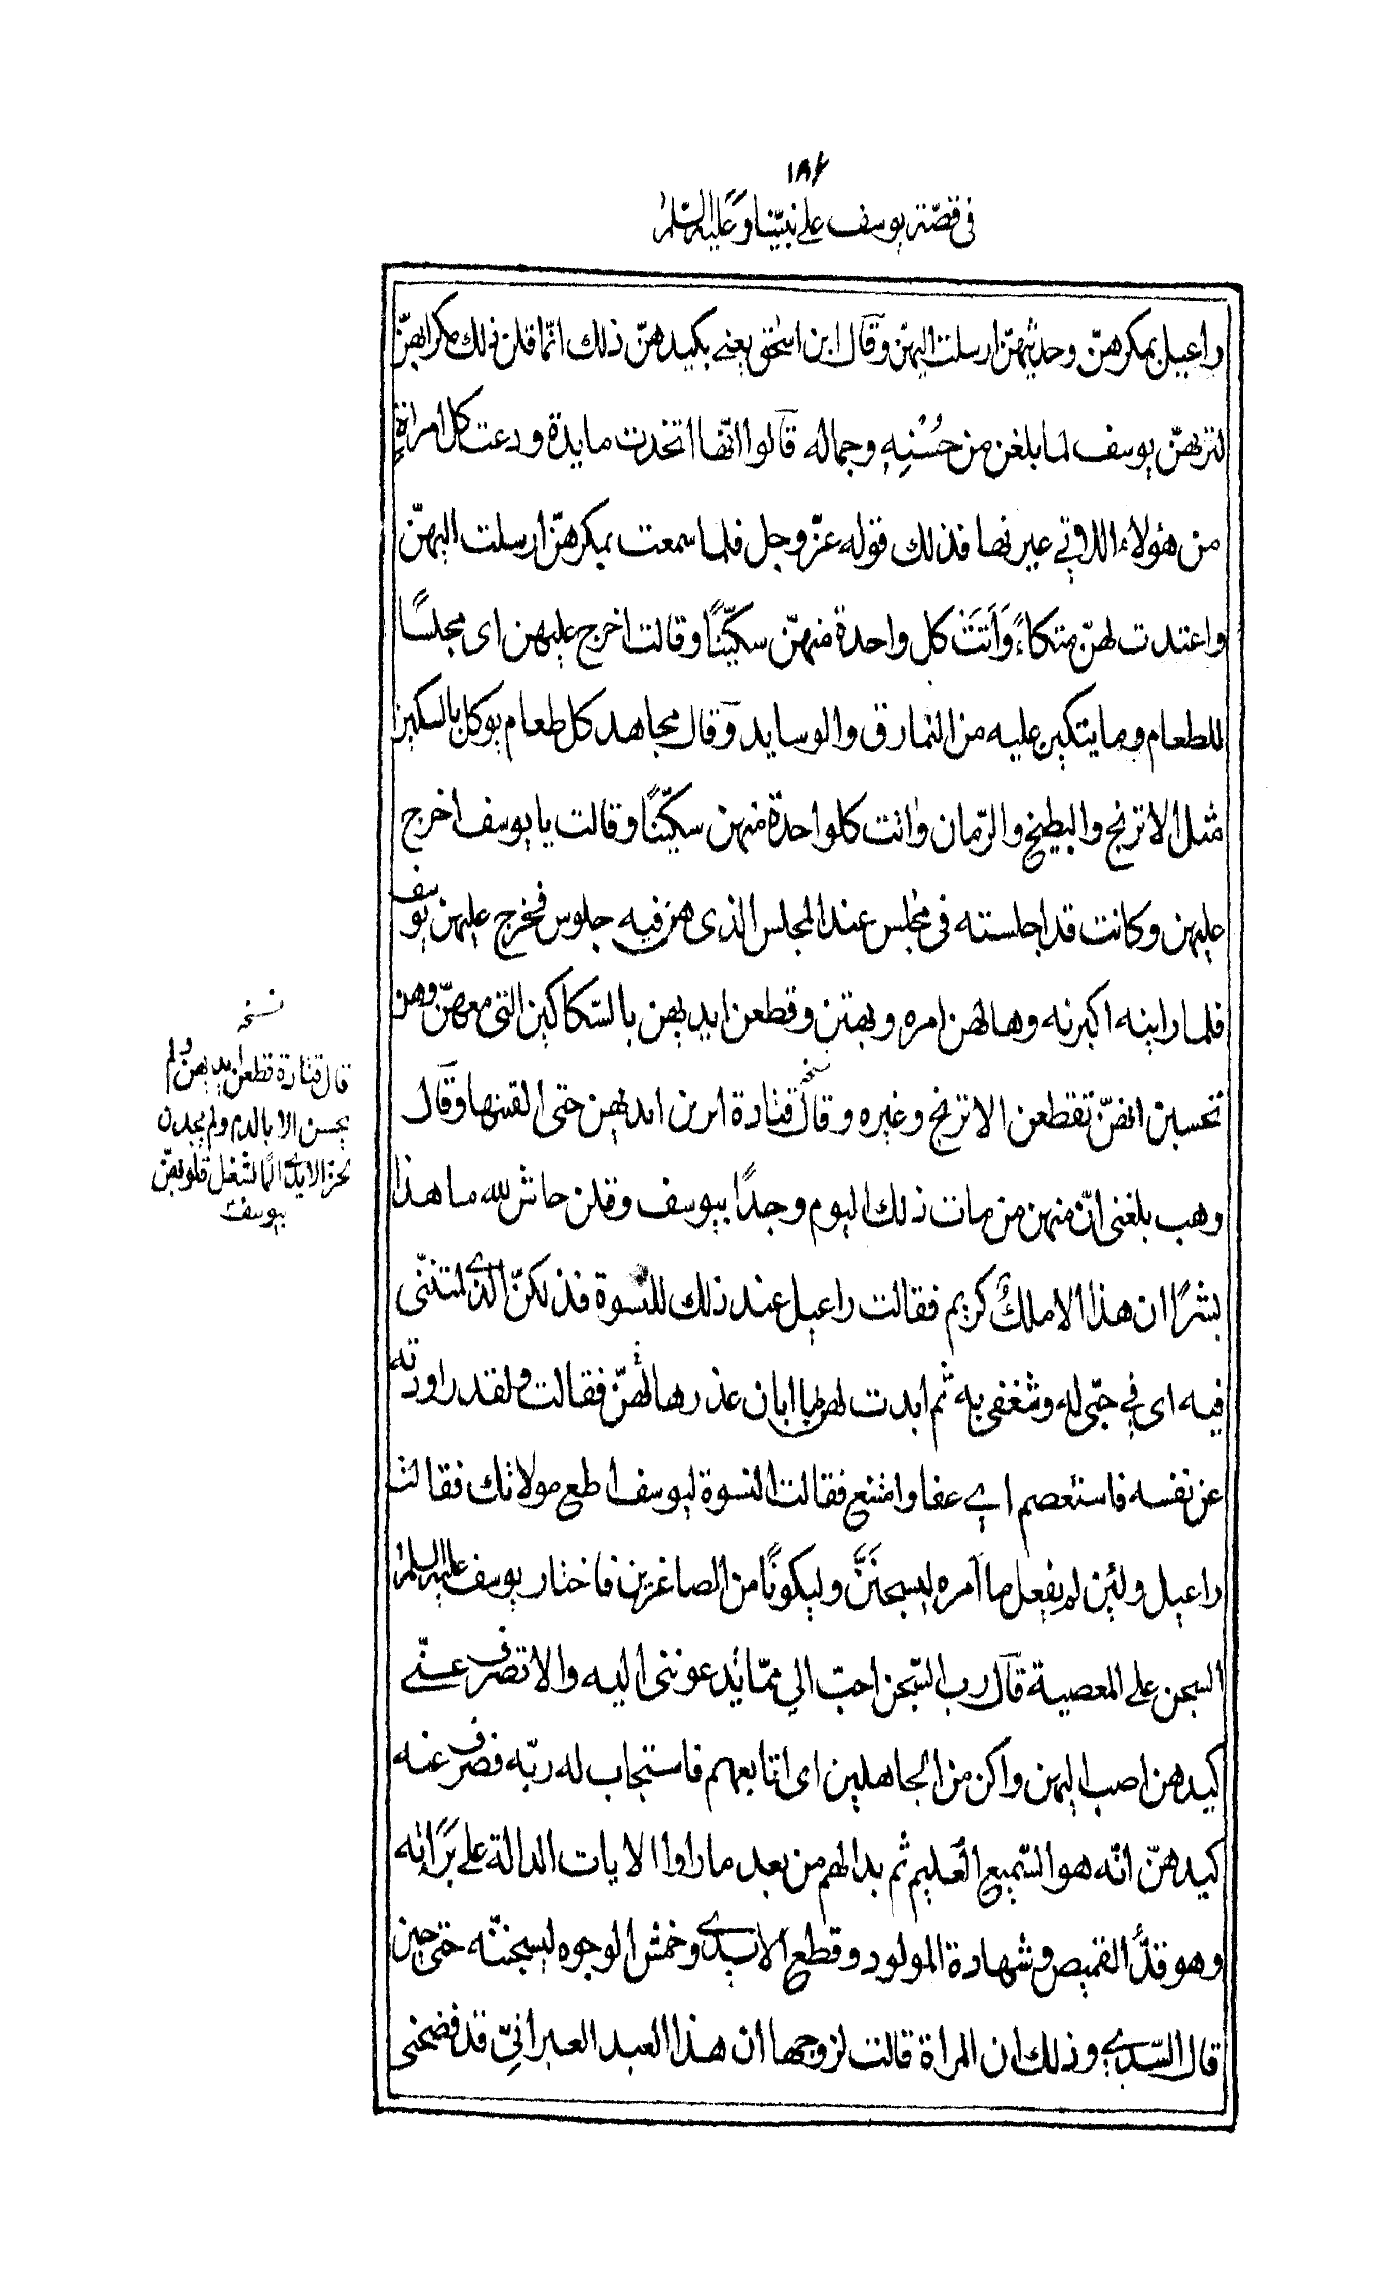 ١٨٦
في قصّة يوسف على نبيّنا وعليه السّلم
راعيل بمكرهنّ وحديثهنّ ارسلت اليهنّ وقال ابن اسحٰق يعني بكيدهنّ ذلك انّما قلن ذلك مكرا بهنّ
لتريهنّ يوسف لما بلغن من حُسْنِهِ وجماله قالوا انّها اتخذت مايدة ودعت كل امراةٍ
من هؤلاء اللاوتي عيرنها فذلك قوله عزّ وجل فلما سمعت بمكرهنّ ارسلت اليهنّ
واعتدت لهنّ متكاءً وَاَتَتْ كل واحدة منهنّ سكيّنًا وقالت اخرج عليهن اى مجلسًا
للطعام وما يتكين عليه من النمارق والوسايد وقال مجاهد كل طعام يوكل بالسكين
مثل الاترنج والبطيخ والرّمان واتت كلواحدة منهن سكيّنًا وقالت يا يوسف اخرج
عليهن وكانت قد اجلسته فى مجلس عند المجلس الذى هن فيه جلوس فخرج عليهن يوسف
فلما راينه اكبرنه وهالهن امره وبهتن وقطعن ايديهن بالسّكاكين التى معهنّ وهن
تحسبن انهنّ تقطعن الاترنج وغيره وقال قتادة ابن ايديهن حتى القينها وقال
وهب بلغنى انّ منهن من مات ذلك اليوم وجدًا بيوسف وقلن حاش لله ما هذا
بشرًا ان هذا الا ملكٌ كريم فقالت راعيل عند ذلك للنسوة فذلكنّ الذى لمتننّى
فيه اى في حبّى له وشغفى به ثم ابدت لهن ابان عذرها لهنّ فقالت ولقد راودته
عن نفسه فاستعصم اي عفا وامتنع فقالت النسوة ليوسف اطع مولاتك فقالت
راعيل ولئن لم يفعل ما آمره ليسجنَنَّ وليكونًا من الصاغرين فاختار يوسف عليه السلم
السجن على المعصية قال رب السّجن احبّ الي ممّا يدعوننى اليه والا تصرف عنّي
كيدهن اصب اليهن واكن من الجاهلين اى اتابعهم فاستجاب له ربّه فصرف عنه
كيدهنّ انّه هو السّميع العَليم ثم بدا لهم من بعد ما راوا الايات الدالة على بَرَاته
وهو قدُّ القميص وشهادة المولود وقطع الايدى وخمش الوجوه ليسجننّه حتى حين
قال السّدي وذلك ان المراة قالت لزوجها ان هذا العبد العبرانيّ قد فضحنى
نسخه
نسخه
قال قتادة قطعن ايديهن ولم
يحسن الا بالدم ولم يجدن
بحز الايدي الما لشغل قلوبهنّ
بيوسف